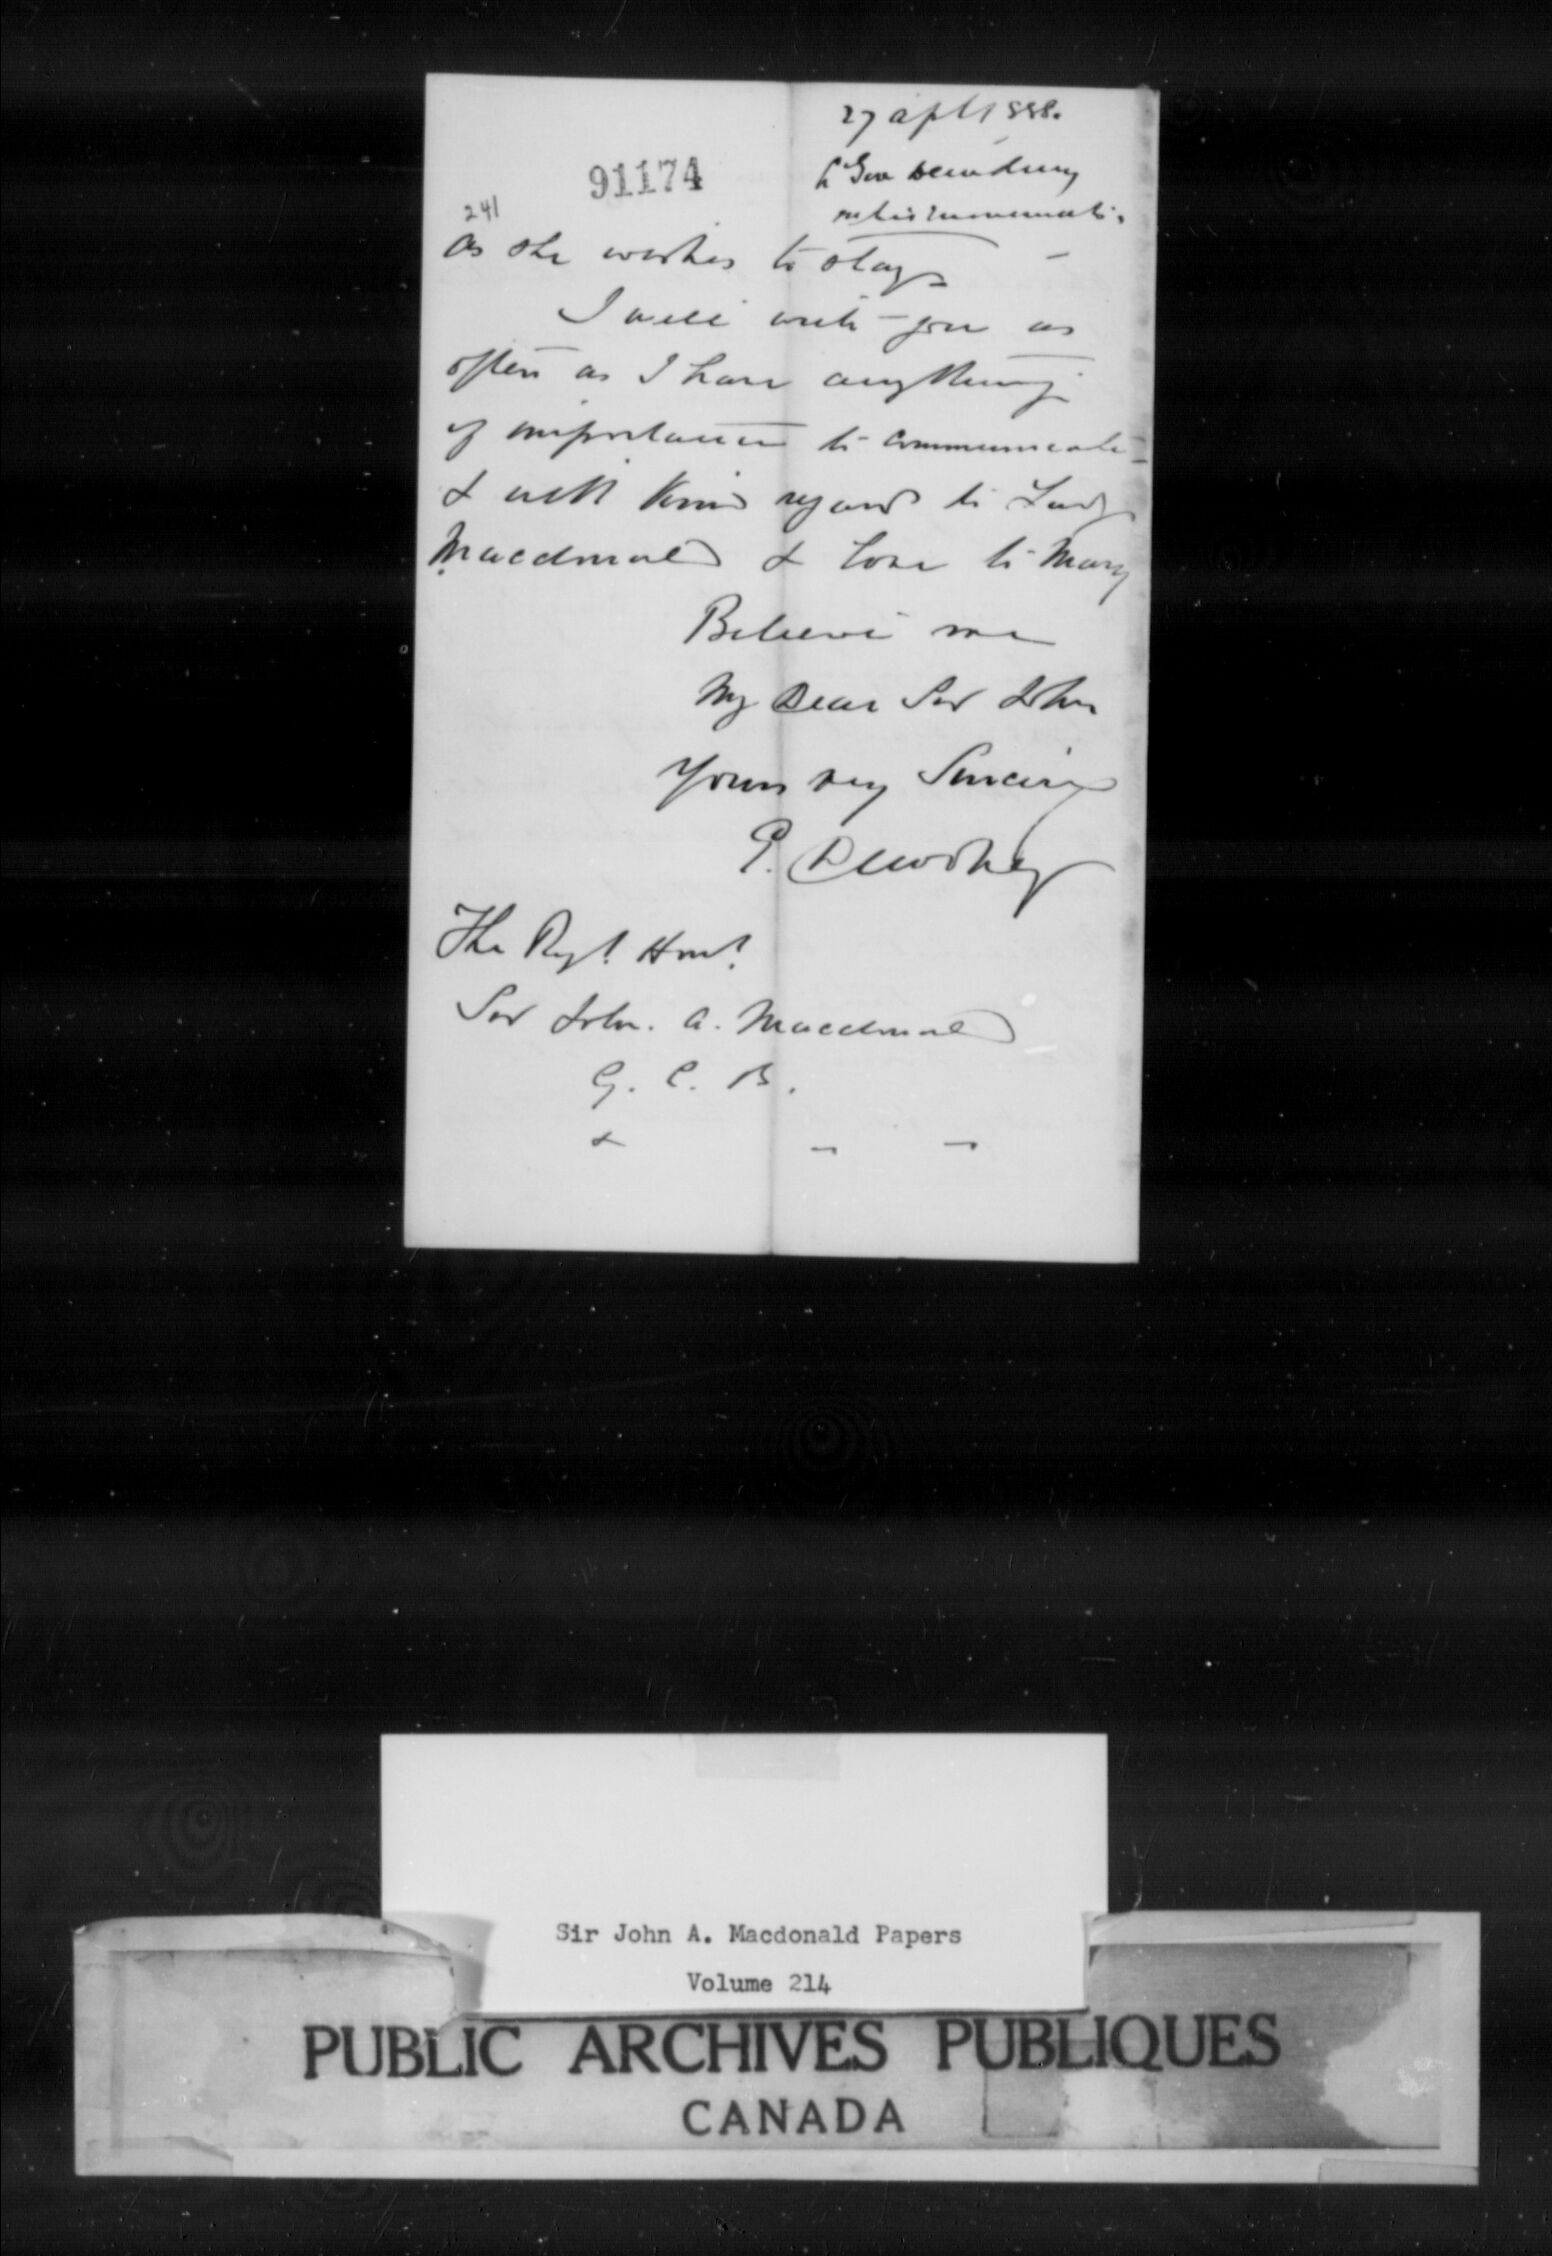 27 Apl 1888.
L Gov Dewdney
91174
241
as she wishes to stay
I will write you as
often as I have anything
of importance to communicate
& with kind regards to Lady
Macdonald & love to Mary
Believe me
My Dear Sir John
Yours very Sincerely
E. Dewdney
The Rgt. Honl.
Sir John. A. Macdonald
G. C. B.
& — —
Sir John A. Macdonald Papers
Volume 214
PUBLIC ARCHIVES PUBLIQUES
CANADA